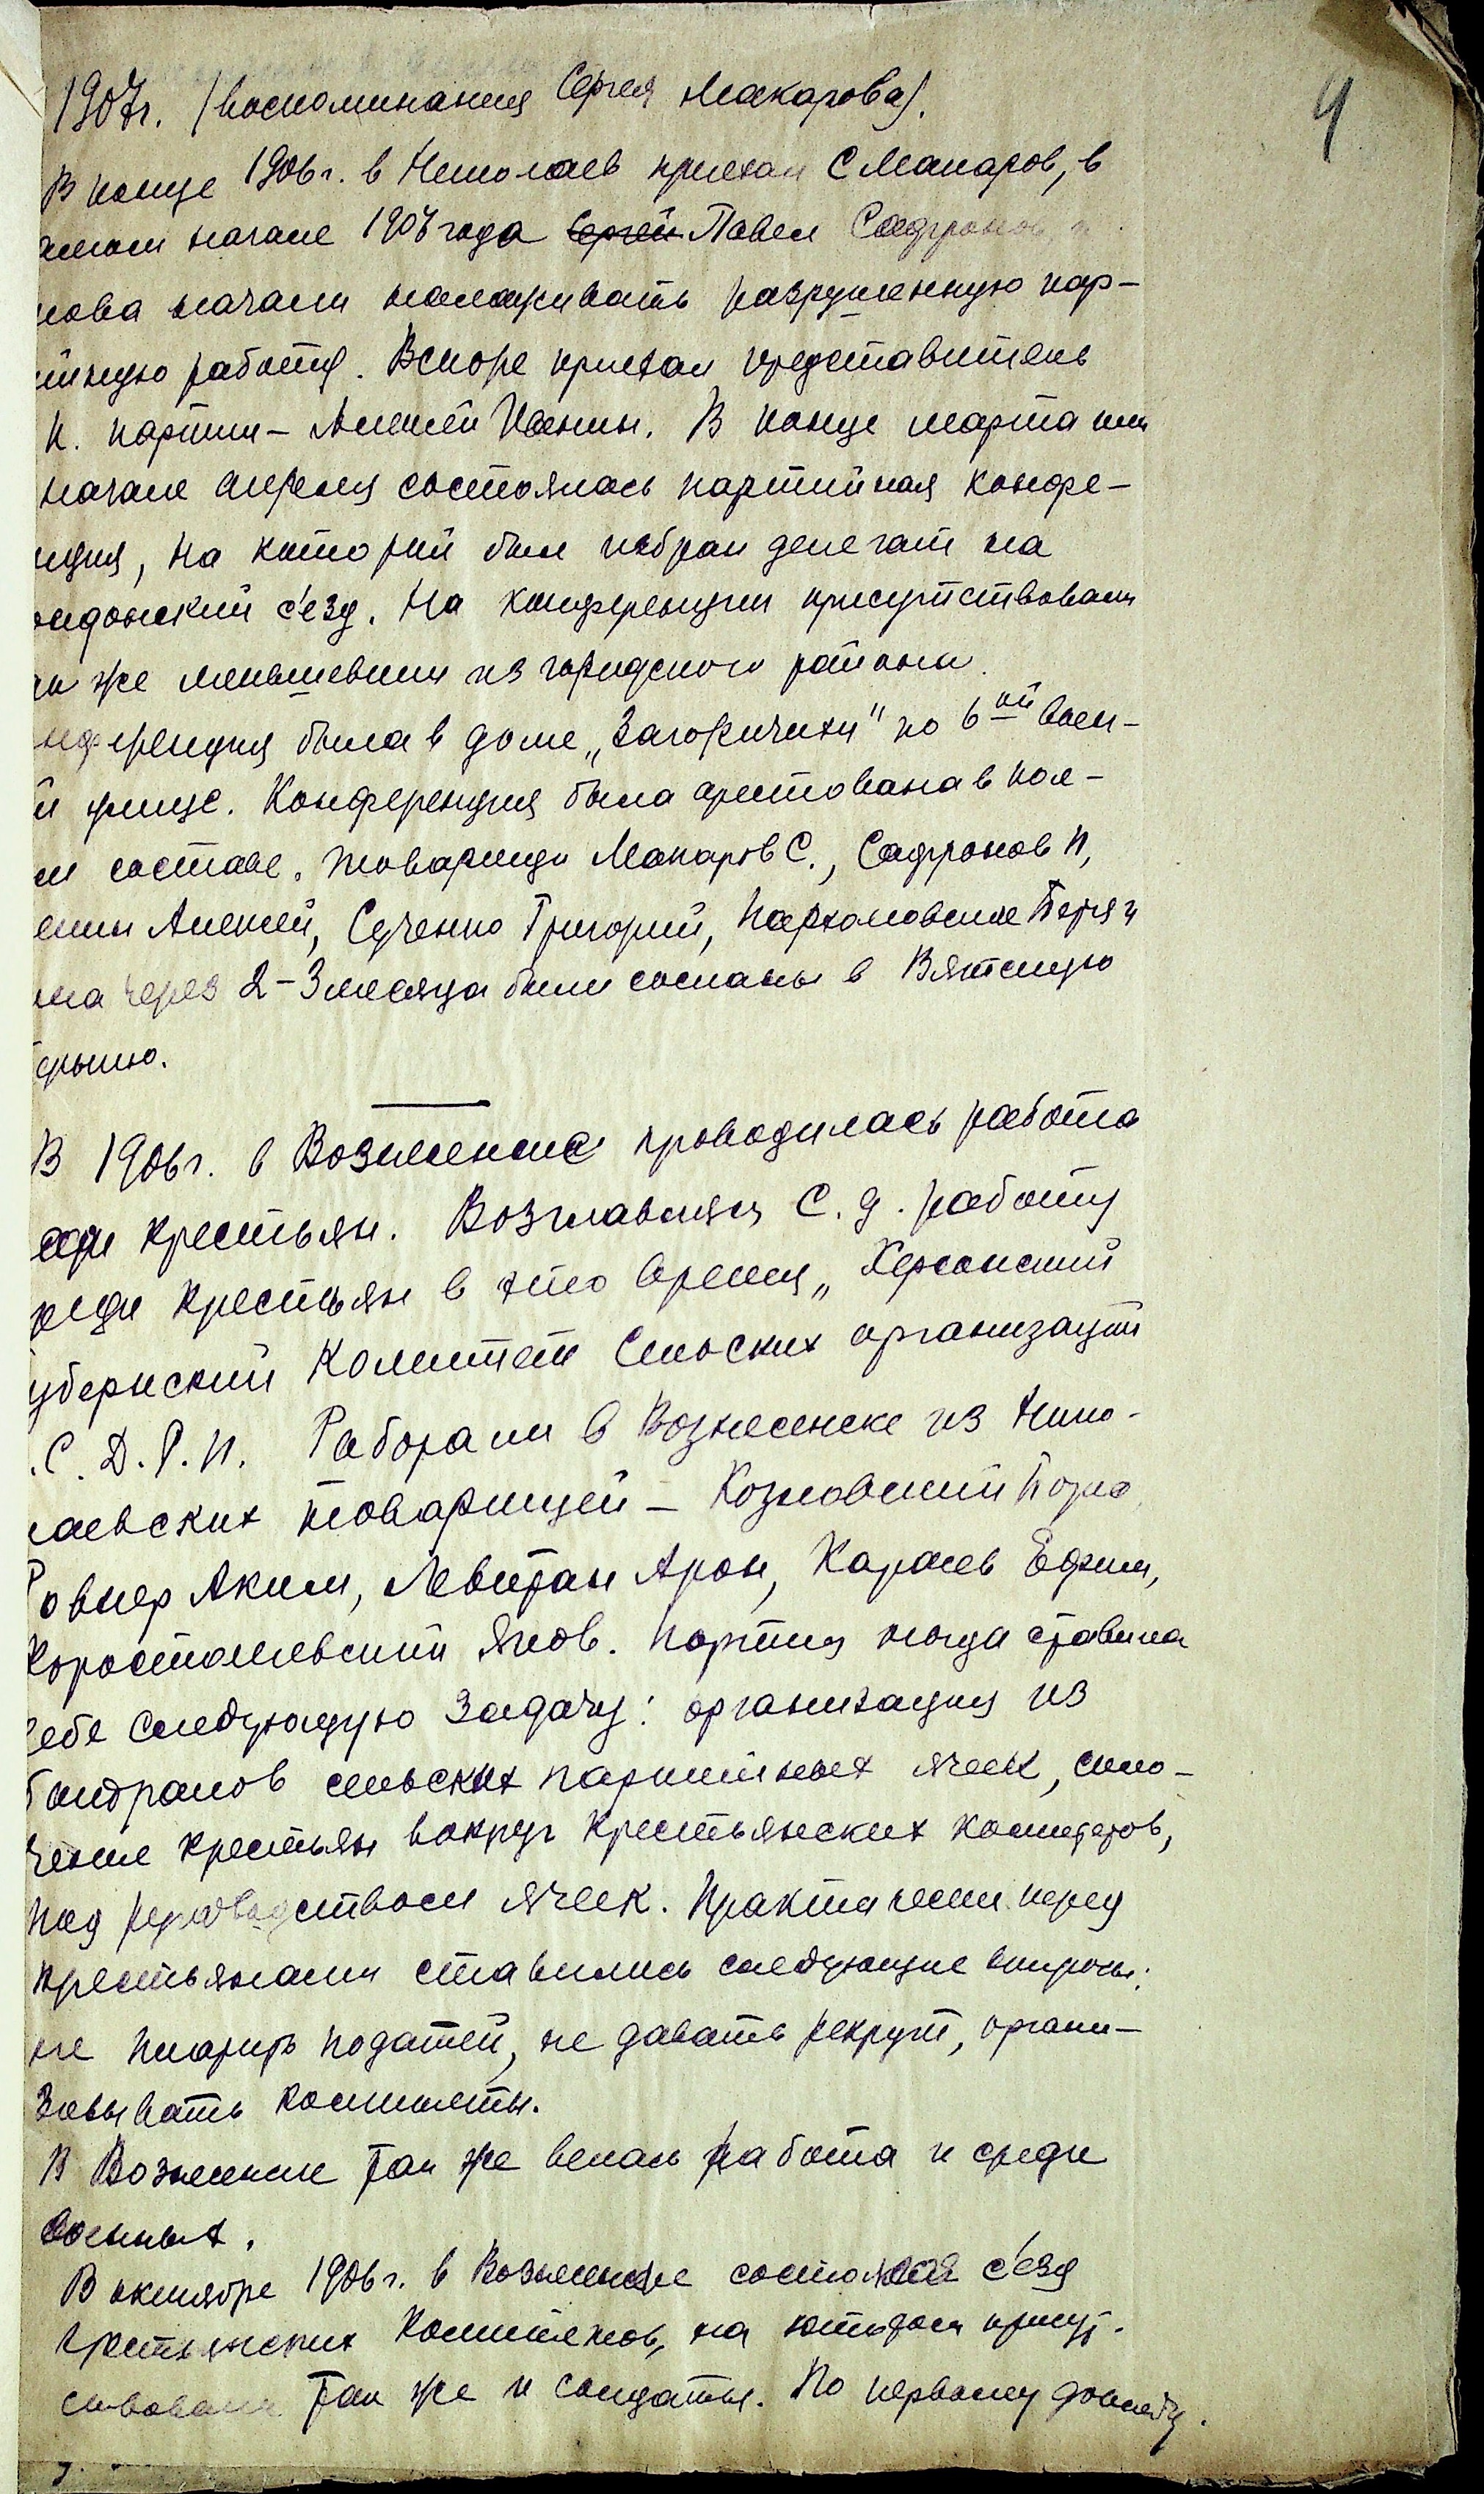 4
1907г. (воспоминания Сергея Макарова).
В конце 1906г. в Николаев приехал С Макаров, в
амом начале 1907 года Сергей Павел Сафронов, и
нова начали налаживать разрушенную пар-
ийную работу. Вскоре приехал представитель
К. партии – Алексей Иванин. В конце марта или
начале апреля состоялась партийная конфе-
нция, на которой был избран делегат на
ондонский с'езд. На конференции присутствовали
ак же меньшевики из городского района.
нференция была в доме „Загоричихи" по 6ой Воен-
й улице. Конференция была арестована в пол-
м составе. товарищи Макаров С., Сафронов П,
Алексей, Сученко Григорий, Пархомовские Петя и
через 2-3 месяца были сосланы в Вятскую
ернию.
В 1906г. в Вознесенске проводилась работа
еди крестьян. Возглавлял С.д. работу
реди крестьян в это время „Херсонский
убернский Комитет Сельских организаций
.С.Д.Р.П. Работали в Вознесенске из Нико-
лаевских товарищей – Козловский
Ровнер Аким, Левитан Арон, Карасев Ефим,
Коростошевский Яков. Партия тогда ставила
себе следующую задачу: организация из
сельских партийных ячеек, спло-
чение крестьян вокруг Крестьянских комитетов,
под руководством ячеек. Практически перед
крестьянами ставились следующие вопросы:
не платить податей, не давать рекрут, органи-
зовывать комитеты.
В Вознесенске так же велась работа и среди
военных.
В октябре 1906г. в Вознесенске состоялся с'езд
крестьянских Комитетов, на котором присут-
ствовали так же и солдаты. По первому докладу.